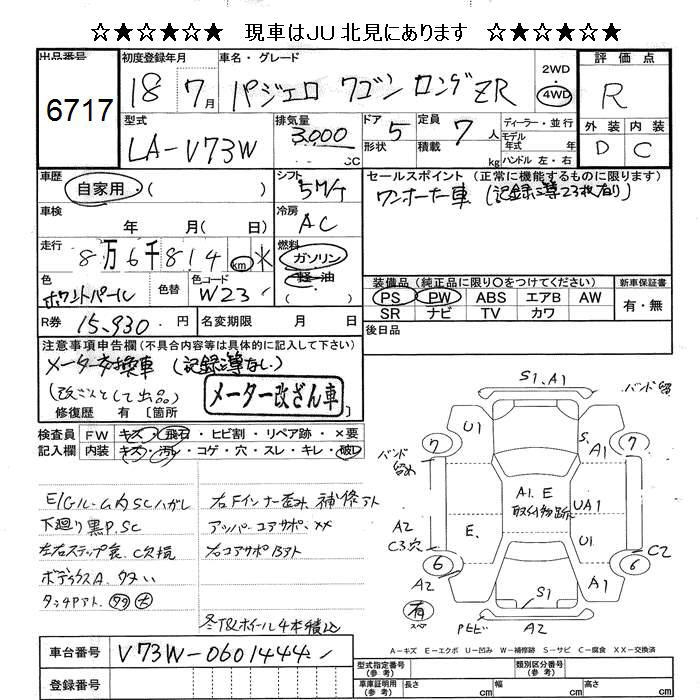 ☆★☆★☆★☆ 現車はJU北見にあります ☆★☆★☆★☆
出品番号 初度登録年月 車名・グレード 評価点
6717 18 7月 パジェロ ワゴン ロングZR 2WD・4WD R
型式 排気量 ドア形状 定員積載 ディーラー・並行 外装 内装
LA-V73W 3,000cc 5 7人 kg モデル年式 年式 ハンドル 左・右 D C
車歴 シフト セールスポイント (正常に機能するものに限ります)
自家用・( ) 5M/T ワンオーナー車 (記録簿23枚有り)
車検 冷房
年 月(日) AC
走行 燃料
8万6千814 km ※ ガソリン・軽油
色 色替 色コード 装備品 (純正品に限り○をつけてください) 新車保証書
ホワイトパール W23 ( ) PS PW ABS エアB AW 有・無
SR ナビ TV カワ
R券 15,930円 名変期限 月 日 後日品
注意事項申告欄(不具合内容等は具体的に記入して下さい)
メーター交換車 (記録簿等なし)
(改ざんとして出品) メーター改ざん車
修復歴 有 〔箇所
検査員 FW キズ・飛石・ヒビ割・リペア跡・×要
記入欄 内装 キズ・汚れ・コゲ・穴・スレ・キレ・破レ
E/Gルーム内SCハガレ 右Fインナー歪み補修アト
下廻り黒P.SC アッパーコアサポ××
左右ステップ裏 C欠損 右コアサポBアト
ボデックスA タタい
タッチPアト
冬T&ホイール4本積込
S1、A1
バンド留
U1 S、A1
7 7
バンド留め
A1.E
UA1
E、
U1
A2 C3穴
C2
6 6
A2 A1
有
S1
Pビビ A2
A-キズ E-エクボ U-凹み W-補修跡 S-サビ C-腐食 XX-交換済
車台番号 V73W-0601444
登録番号
型式指定番号(参考) 類別区分番号(参考)
車庫証明用(参考) 長さ cm 幅 cm 高さ cm